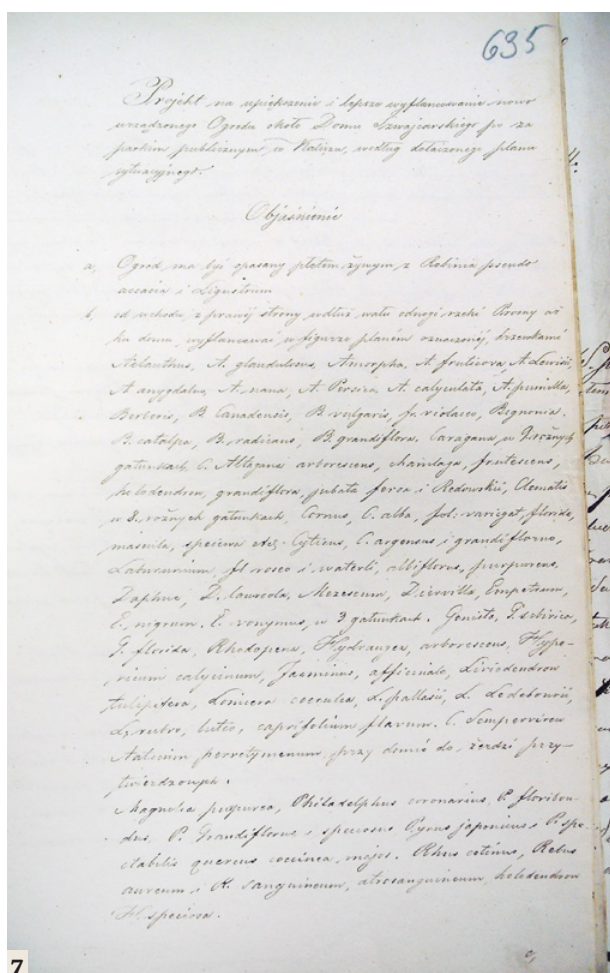 635
Projekt na upiększenie i lepsze wyflancowanie nowo
urządzonego Ogrodu około Domu Szwajcarskiego po za
parkiem publicznym w Kaliszu, według dołączonego planu
sytuacyjnego.
Objaśnienie
a, Ogród ma być opasany płotem żywym z Robinia pseudo
accacia i Ligustrum
b, od wchodu z prawej strony wdłuż wału odnogi rzeki Prosny aż
ku domu, wyflancować w figurze planem oznaczonej, krzewkami
Ailanthus, A. glandulosus, Amorpha, A. fruticosa A. Lewisii,
A amygdalus, A. nana, A. Persica, A. calyculata, A. pumilla,
Berberis, B. Canadensis, B. vulgaris, fr. violaceo, Begnonia.
B. catalpa, B. radicans, B. grandiflora, Caragana w rożnych
gatunkach, C. Altagana arborescens, chamlaga, frutescens,
halodendron, grandiflora, jubata ferox i Redowskii, Clematis
w 8. rożnych gatunkach, Cornus, C. alba, fol: variegat, florida,
mascula, Cytisus, C. argenteus i grandiflorus,
Laburnum fl roseo i waterli, albiflorus, purpureus.
Daphne, D. laureola, Mezereum, Diervilla, Empetrum,
E. nigrum. E. vonymus, w 3 gatunkach. Genista, G. sibirica,
G. florida, Hydrangea, arborescens, Hype-
ricum calycinum, Jasminus, officinale, Liriodendron
tulipifera, Lonicera coerulea, L. pallasii, L. Ledebourii,
L, rubro, luteo, caprifolium flavum. C. Sempervirens
przy domie do, żerdzi przy-
twierdzonych.
Magnolia purpurea, Philadelphus coronarius, P. floribun-
dus, P. Grandiflorus i speciosus Pyrus japonicus i P. spe-
ctabilis quercus coccinea major. Rhus cotinus, Rebus
aureum i R. sanguineum, atrosanguineum, halodendron
H. speciosa.
7